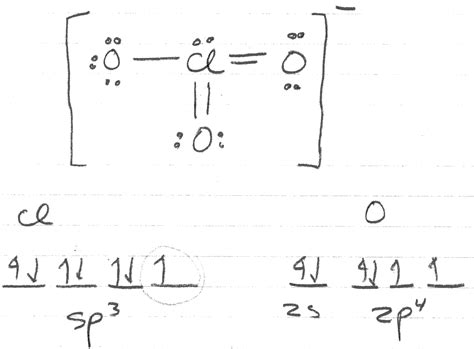 [:O — Cl = O]⁻
:O:
Cl O
↑↓ ↑↓ ↑↓ ↑ ↑↓ ↑↓ ↑ ↑
sp³ 2s 2p⁴